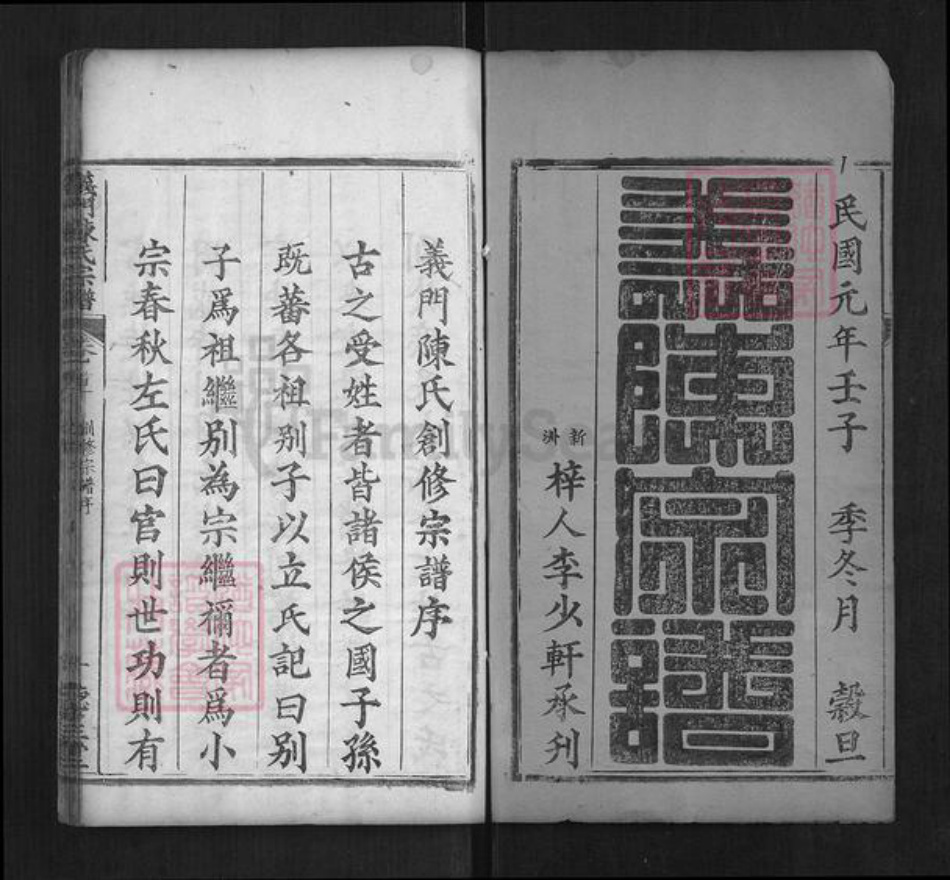 民國元年壬子 季冬月 穀旦
義陳宗譜
新洲 梓人李少軒承刋
義門陳氏創修宗譜序
古之受姓者皆諸侯之國子孫
既蕃各祖别子以立氏記曰别
子爲祖繼别為宗繼禰者爲小
宗春秋左氏曰官則世功則有
義門陳氏宗譜
創修宗譜序
FamilySearch